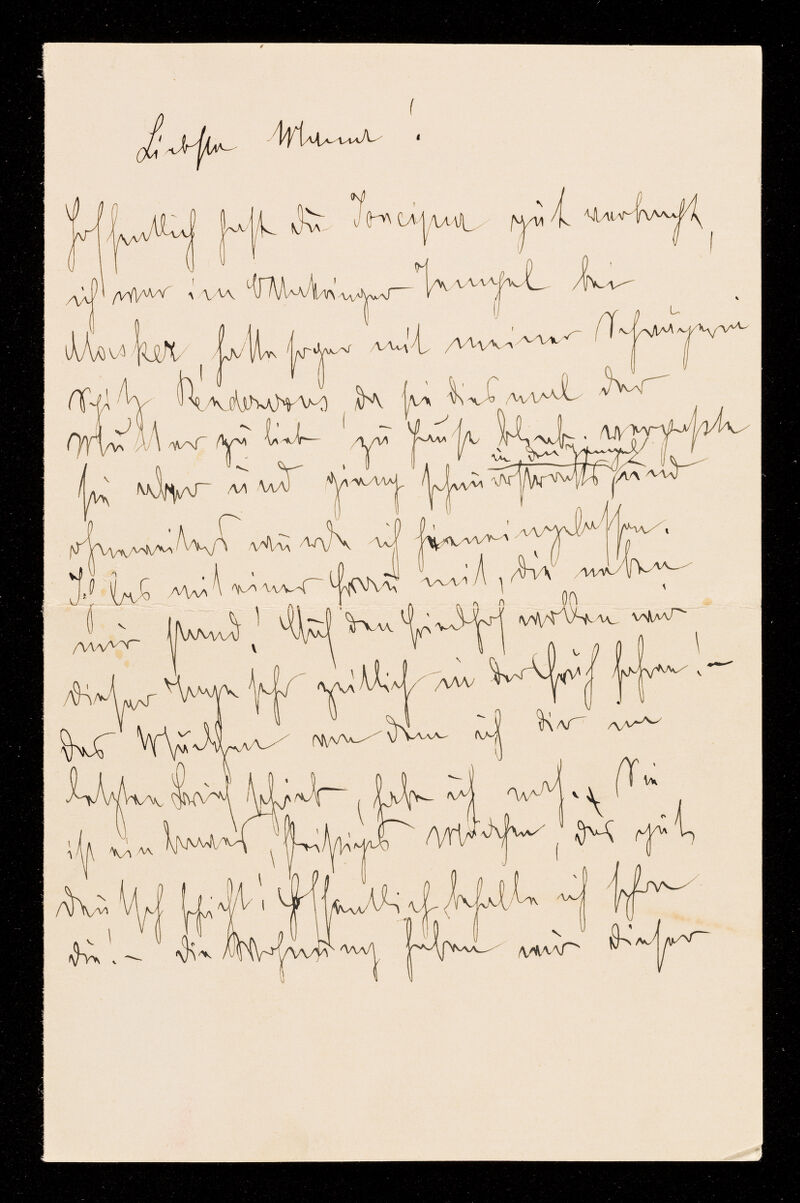 Liebste Mama!
Hoffentlich hast du Joncipur gut verbracht,
ich war im Ottakringer Tempel bei
Masker, hatte sogar mit meiner Schwägerin
Spitz Rendezvous, da sie diesmal der
Mutter zu lieb zu Hause blieb. verpasste
in den Tempel
sie aber und gieng schnurstracks und
ohneweiters wurde ich hineingelassen.
Ich las mit einer Frau mit, die neben
mir stand! Auf den Friedhof wollen wir
dieser Tage sehr zeitlich in der Früh fahren! –
Das Mädchen von dem ich dir im
letzten Brief schrieb, habe ich noch. Sie
ist ein braves, fleißiges Mädchen, das gut
deutsch spricht! Hoffentlich behalte ich schon
die! – die Wohnung haben wir dieser